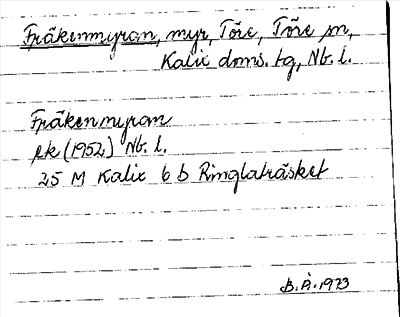 Fräkenmyran, myr, Töre, Töre sn,
Kalix doms. tg, Nb. l.
Fräkenmyran
ek (1952) Nb. l.
25 M Kalix 6 b Ringlaträsket
B.Å. 1973